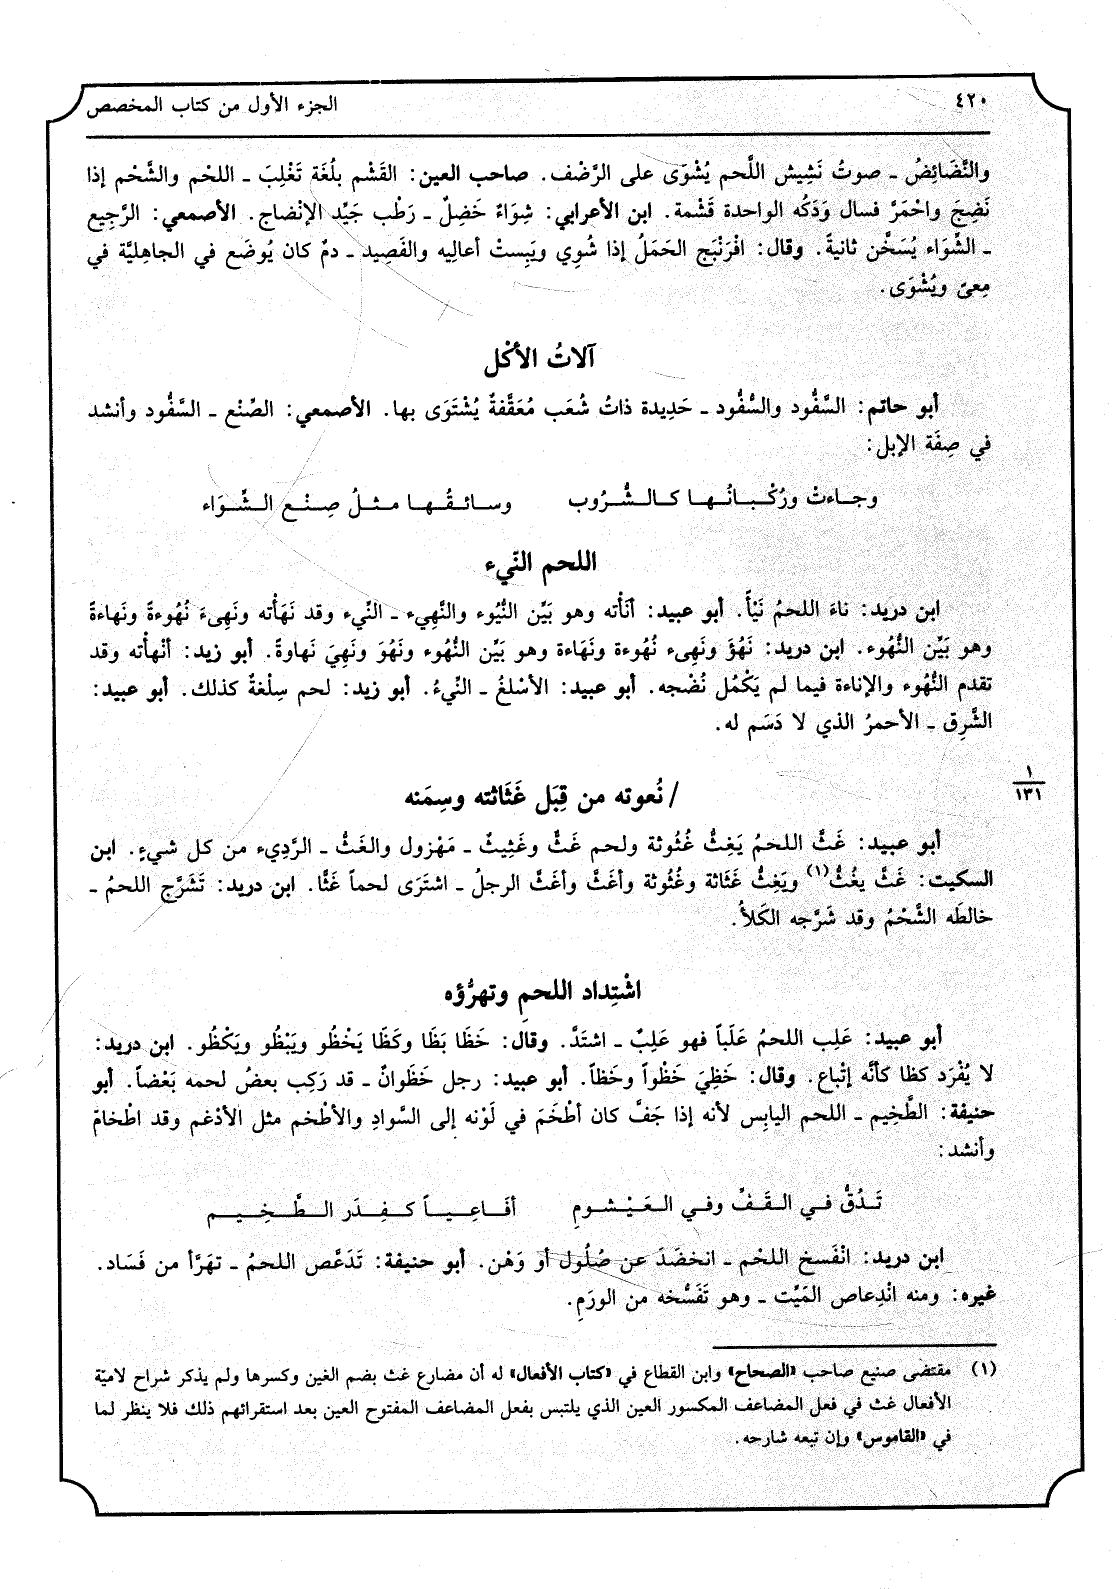 ٤٢٠
الجزء الأول من كتاب المخصص
والنَّضَائِضُ ـ صوتُ نَشِيش اللَّحم يُشْوَى على الرَّضْف. صاحب العين: القَشْم بلُغَة تَغْلِبَ ـ اللحْم والشَّحْم إذا
نَضِجَ واحْمَرَّ فسال وَدَكُه الواحدة قَشْمة. ابن الأعرابي: شِوَاءٌ خَضِلٌ ـ رَطْب جَيِّد الإنْضاج. الأصمعي: الرَّجِيع
ـ الشِّوَاء يُسَخَّن ثانيةً. وقال: افْرَنْبَج الحَمَلُ إذا شُوِي ويَبِستْ أعالِيه والفَصِيد ـ دمٌ كان يُوضَع في الجاهِليَّة في
مِعىً ويُشْوَى.
آلاتُ الأكْل
أبو حاتم: السَّفُّود والسُّفُّود ـ حَدِيدة ذاتُ شُعَب مُعَقَّفةٌ يُشْتَوَى بها. الأصمعي: الصِّنْع ـ السَّفُّود وأنشد
في صِفَة الإبل:
وجـاءتْ ورُكْـبـانُـهـا كـالـشُّـرُوب وسـائـقُـهـا مـثـلُ صِـنْـع الـشِّـوَاء
اللحم النِّيء
ابن دريد: ناءَ اللحمُ نَيْأً. أبو عبيد: أنَأْته وهو بَيِّن النُّيُوء والنَّهِيء ـ النِّيء وقد نَهَأْته ونَهِىءَ نُهُوءةً ونَهاءةً
وهو بَيِّن النُّهُوء. ابن دريد: نَهُؤَ ونَهِىء نُهُوءة ونَهَاءة وهو بَيِّن النُّهُوء ونَهُوَ ونَهِيَ نَهاوةً. أبو زيد: أنْهأْته وقد
تقدم النُّهُوء والإناءة فيما لم يَكْمُل نُضْجه. أبو عبيد: الأسْلغُ ـ النِّيءُ. أبو زيد: لحم سِلْغةٌ كذلك. أبو عبيد:
الشَّرِق ـ الأحمرُ الذي لا دَسَم له.
١
١٣١
/ نُعوته من قِبَل غَثَاثته وسِمَنه
أبو عبيد: غَثَّ اللحمُ يَغِثُّ غُثُوثة ولحم غَثٌّ وغَثِيثٌ ـ مَهْزول والغَثُّ ـ الرَّدِيء من كل شيءٍ. ابن
السكيت: غَثَّ يغُثُّ(١) ويَغِثُّ غَثَاثة وغُثُوثة وأغَثَّ وأغَثَّ الرجلُ ـ اشتَرَى لحماً غَثًّا. ابن دريد: تَشَرَّج اللحمُ ـ
خالطَه الشَّحْمُ وقد شَرَّجه الكَلأُ.
اشْتِداد اللحمِ وتهرُّؤه
أبو عبيد: عَلِب اللحمُ عَلَباً فهو عَلِبٌ ـ اشتَدَّ. وقال: خَظَا بَظَا وكَظَا يَخْظُو ويَبْظُو ويَكْظُو. ابن دريد:
لا يُفْرَد كظا كأنَّه إتْباع. وقال: خَظِيَ خَظْواً وخَظاً. أبو عبيد: رجل خَظَوانٌ ـ قد رَكِب بعضُ لحمه بَعْضاً. أبو
حنيفة: الطَّخِيم ـ اللحم اليابِس لأنه إذا جَفَّ كان أطْخَمَ في لَوْنه إلى السَّوادِ والأطْخم مثل الأدْغم وقد اطْخامّ
وأنشد:
تَـدُقُّ فـي الـقَـفِّ وفـي الـعَـيْـشـومِ أفَـاعِـيـاً كـقِـدَر الـطَّـخِـيـمِ
ابن دريد: انْفَسخ اللحْم ـ انخضَدَ عن صُلُول أو وَهْن. أبو حنيفة: تَدَعَّص اللحمُ ـ تهَرَّأ من فَسَاد.
غيره: ومنه انْدِعاص المَيِّت ـ وهو تَفَسُّخه من الورَمِ.
(١) مقتضى صنيع صاحب «الصحاح» وابن القطاع في «كتاب الأفعال» له أن مضارع غث بضم الغين وكسرها ولم يذكر شراح لاميّة
الأفعال غث في فعل المضاعف المكسور العين الذي يلتبس بفعل المضاعف المفتوح العين بعد استقرائهم ذلك فلا ينظر لما
في «القاموس» وإن تبعه شارحه.